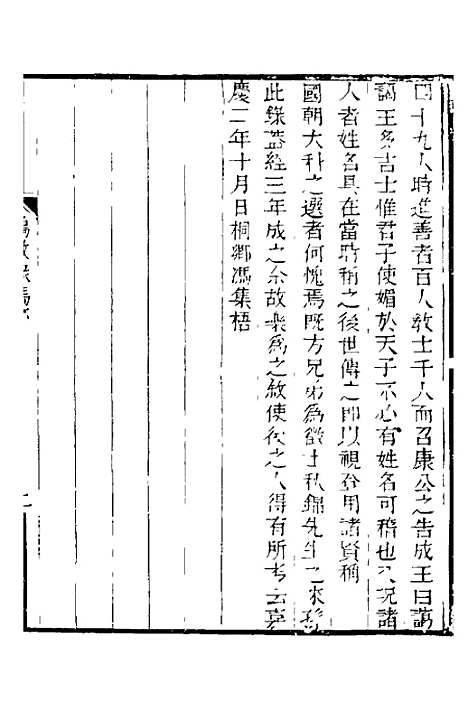 十九人時進善者百人敎士千人而召康公之告成王曰藹
藹王多吉士惟君子使媚於天子不必有姓名可稽也又況諸
人者姓名具在當時稱之後世傳之即以視登用諸賢稱
國朝大科之選者何愧焉旣方兄弟爲徵士秋錦先生之來孫
此錄葢經三年成之余故樂爲之敘使後之人得有所考云嘉
慶二年十月日桐鄉馮集梧